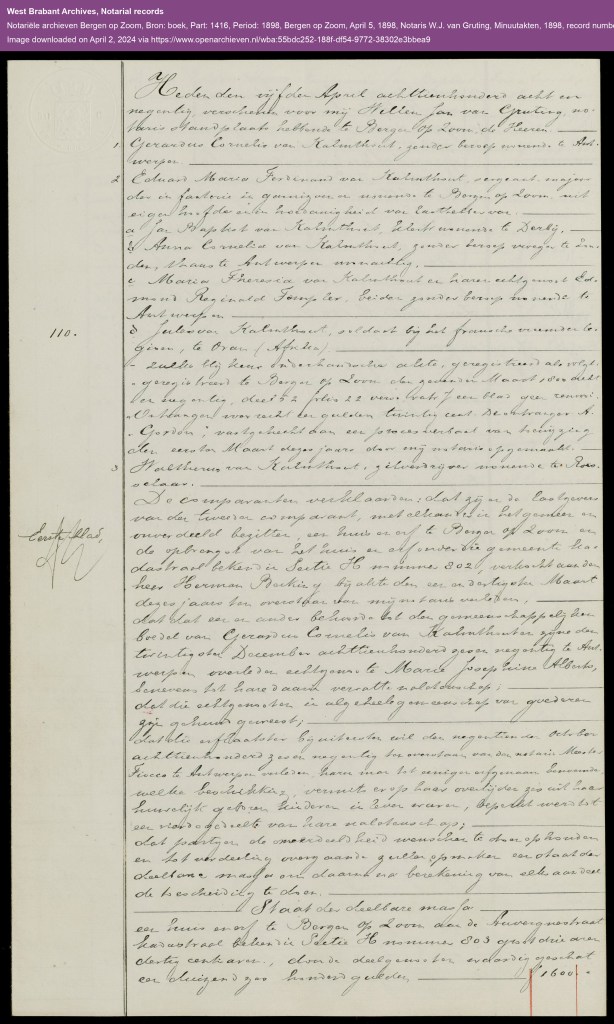 West Brabant Archives, Notarial records
Notariële archieven Bergen op Zoom, Bron: boek, Part: 1416, Period: 1898, Bergen op Zoom, April 5, 1898, Notaris W.J. van Gruting, Minuutakten, 1898, record numbe
Image downloaded on April 2, 2024 via https://www.openarchieven.nl/wba:55bdc252-188f-df54-9772-38302e3bbea9
Heden den vijfden April achttienhonderd acht en
negentig, verschenen voor mij Willem Jan van Gruting, no-
taris standplaats hebbende te Bergen op Zoom, de Heeren
1 Gerardus Cornelis van Kalmthout, zonder beroep wonende te Ant-
werpen
2 Eduard Maria Ferdinand van Kalmthout, sergeant majoor
der infanterie in garnizoen en wonende te Bergen op Zoom, uit
eigen hoofde en in hoedanigheid van lasthebber van
a Jan Baptist van Kalmthout, wonende te Derby,
b Anna Cornelia van Kalmthout, zonder beroep vroeger te Lon-
den, thans te Antwerpen woonachtig,
c Maria Theresia van Kalmthout en haren echtgenoot Ed-
mond Reginald Templer, beiden zonder beroep wonende te
Antwerpen
110.
d Jules van Kalmthout, soldaat bij het fransche vreemden le-
gioen, te Oran (Afrika)
zulks blijkens onderhandsche akte, geregistreerd als volgt
geregistreerd te Bergen op Zoom den Maart 1800 acht
en negentig, deel 52 folio 22 verso vak 7 een blad geen renvooi.
Ontvangen voor recht een gulden twintig cent De ontvanger A.
Gordon", vastgehecht aan een procesverbaal van
den eersten Maart dezes jaars door mij notaris opgemaakt.
3 Waltherus van Kalmthout, wonende te Roo-
selaar.
De comparanten verklaarden: dat zij en de lastgevers
van den tweeden comparant, met elkander in het gemeen en
onverdeeld bezitten, een huis en erf te Bergen op Zoom en
Eerste blad,
de opbrengst van het huis en erf onder die gemeente ka-
dastraal bekend in Sectie H nummer 802, verkocht aan den
heer Herman bij akte den een en dertigsten Maart
dezes jaars ten overstaan van mij notaris verleden,
dat dat een en ander behoorde tot den gemeenschappelijken
boedel van Gerardus Cornelis van Kalmthout en zijne den
twintigsten December achttienhonderd zeven negentig te Ant-
werpen overleden echtgenoote Maria Josephine Alberts,
benevens tot hare daarin vervatte nalatenschap;
dat die echtgenooten in algeheele gemeenschap van goederen
zijn gehuwd geweest;
dat die erflaatster bij uitersten wil den negentienden October
achttienhonderd zeven negentig ten overstaan van den notaris
te Antwerpen verleden, haren man tot eenigen erfgenaam benoemde
welke beschikking, vermits er op haar overlijden zes uit haar
huwelijk geboren kinderen in leven waren, beperkt werd tot
een vierde gedeelte van hare nalatenschap;
dat partijen de onverdeeldheid wenschen te doen ophouden
en tot verdeeling overgaande zullen opmaken een staat der
deelbare massa om daarna na berekening van elks aandeel
de toescheiding te doen.
Staat der deelbare massa
een huis en erf te Bergen op Zoom aan de Auvergnestraat
kadastraal bekend in Sectie H nummer 803 groot drie aren
dertig centiaren, door de deelgenooten eenparig geschat
een duizend zes honderd gulden f 1600